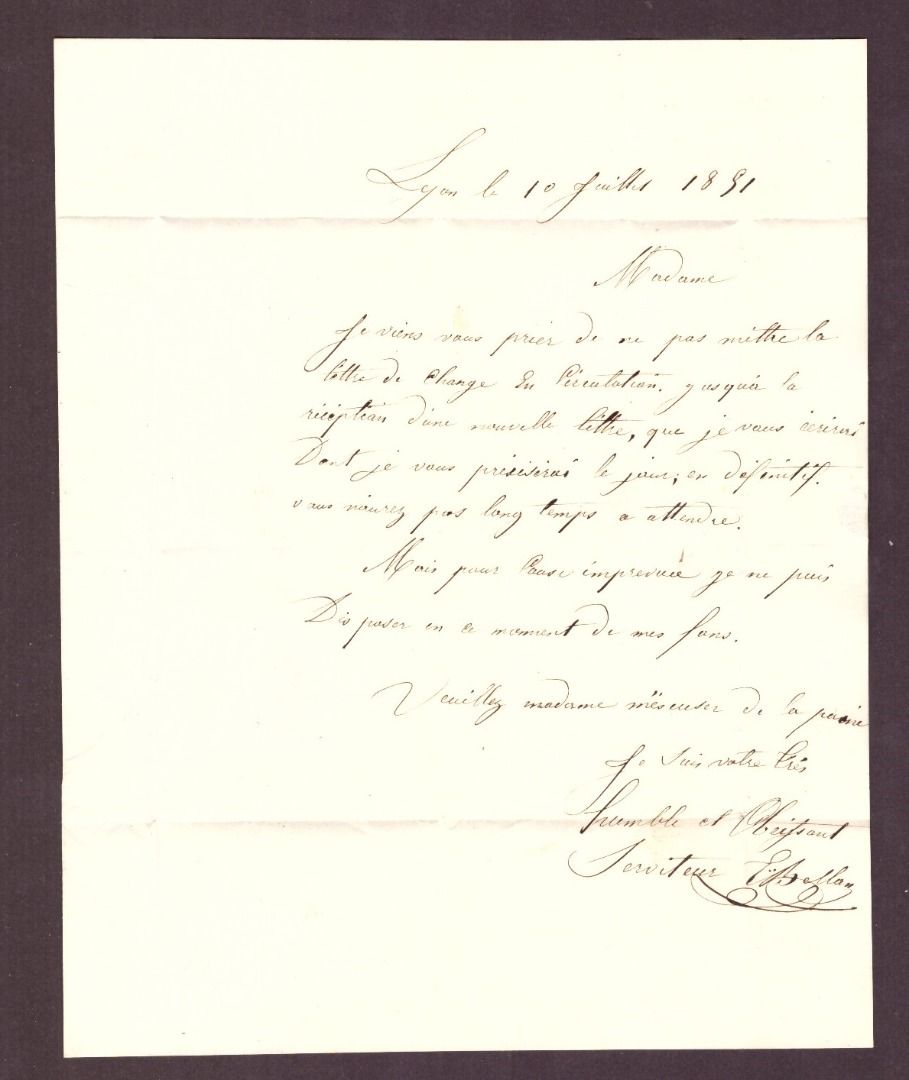 Lyon le 10 Juillet 1851
Madame
Je viens vous prier de ne pas mèttre la
lettre de Change En Circulation. jusquà la
réception d'une nouvelle lettre, que je vous écrirais
Dont je vous présiserai le jour; en définitif.
vous n'aurez pas long temps a attendre.
Mais pour Cause imprevuée je ne puis
Disposer en ce moment de mes fons.
Veuillez madame m'éscuser de la paine
Je Suis votre très
humble et Obeissant
Serviteur